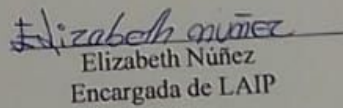 Elizabeth nuñez
Elizabeth Núñez
Encargada de LAIP